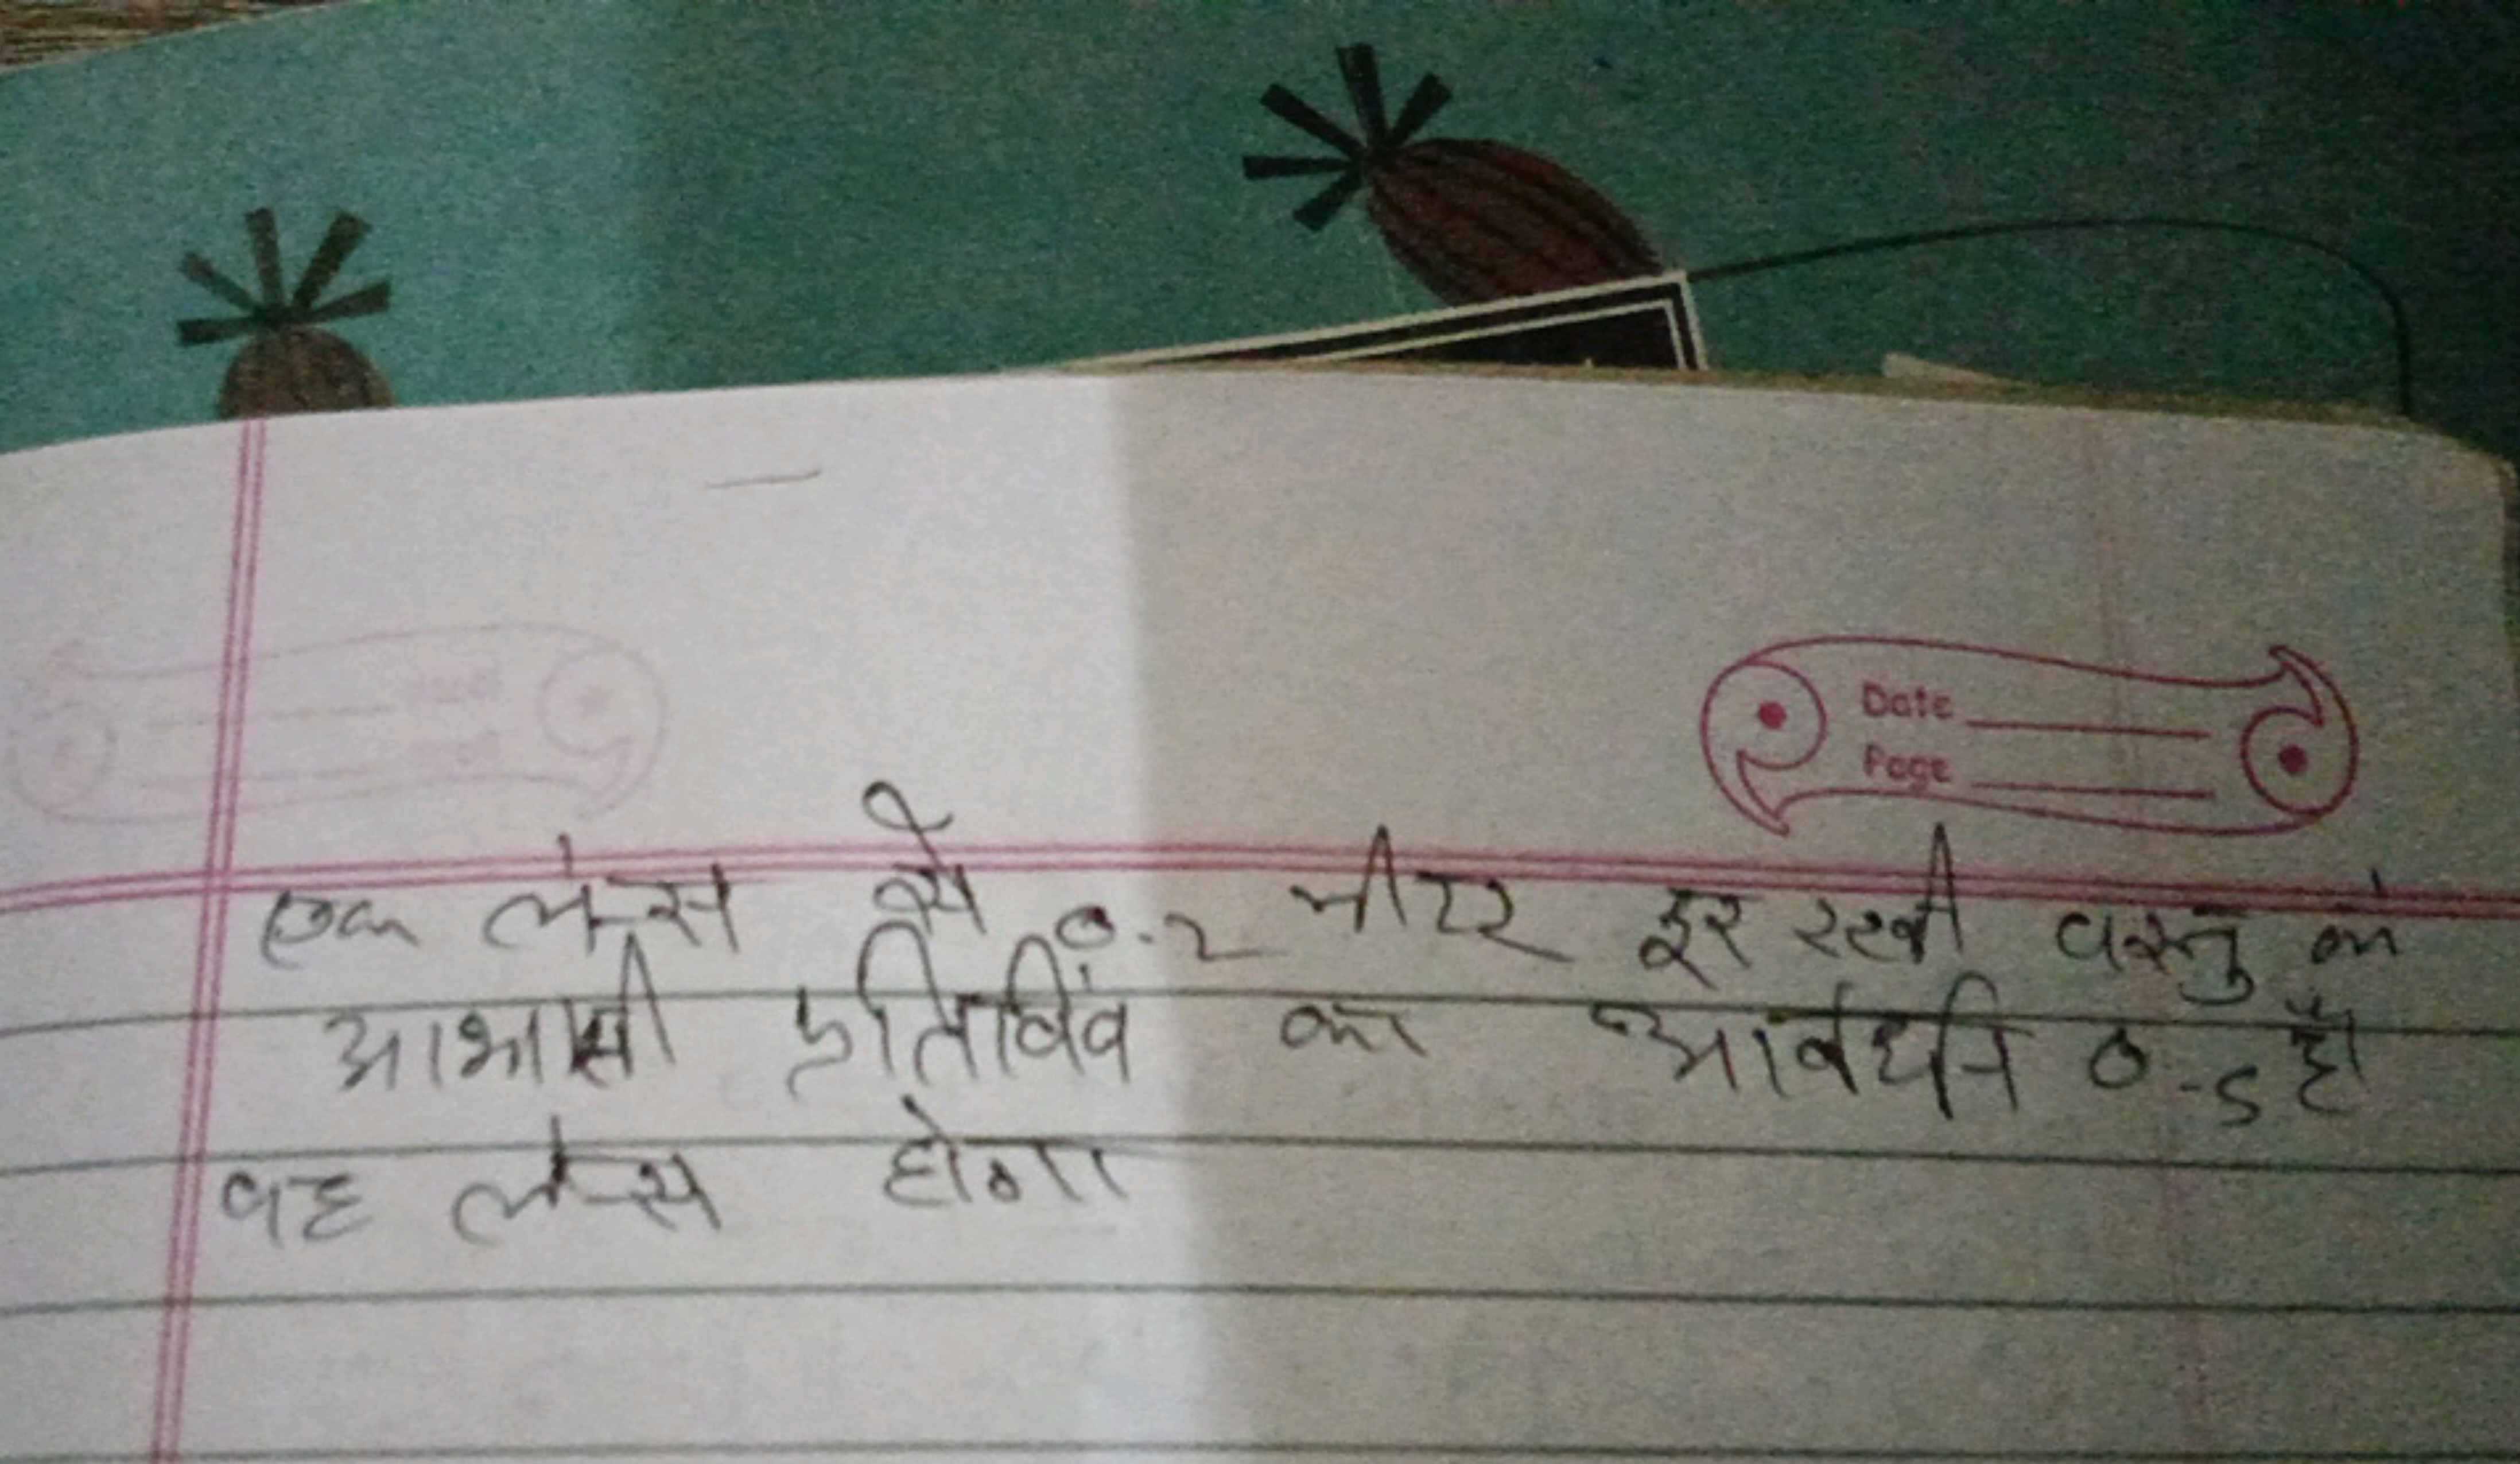 Date
Page
एक लेन्स से 0.2 मीटर दूर रखी वस्तु के
आभासी प्रतिबिंब का आर्वधन 0.5 है।
वह लेन्स होगा